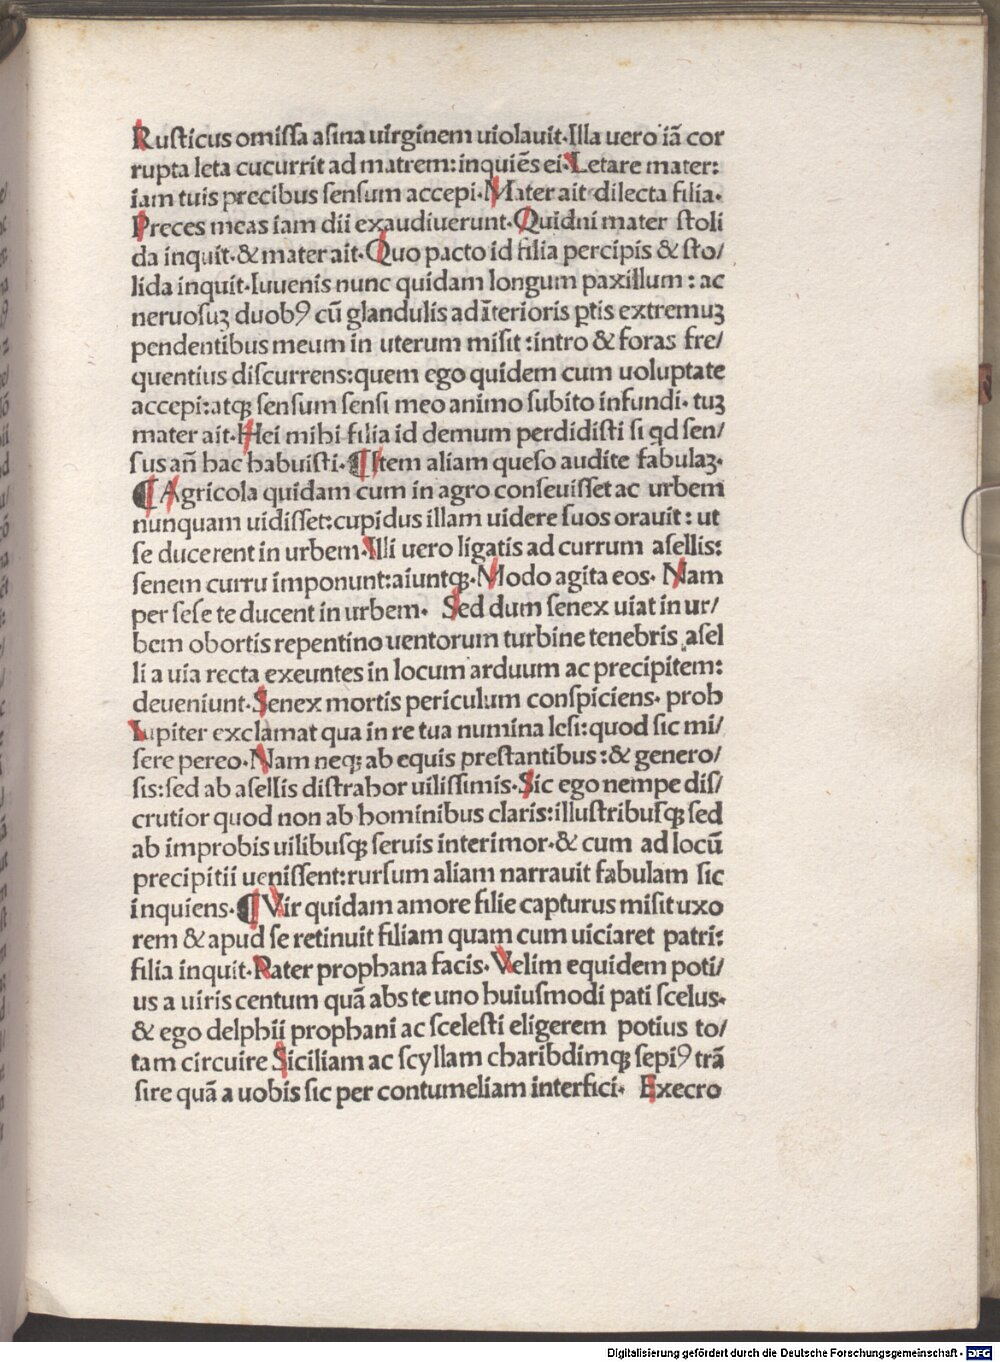 Rusticus omiſſa aſina uirginem uiolauit·Illa uero iã cor
rupta leta cucurrit ad matrem:inquiẽs ei·Letare mater:
iam tuis precibus ſenſum accepi·Mater ait dilecta filia·
Preces meas iam dii exaudiuerunt·Quidni mater ſtoli
da inquit·& mater ait·Quo pacto id filia percipis & ſto/
lida inquit·Iuuenis nunc quidam longum paxillum : ac
neruoſuꝫ duobꝰ cũ glandulis ad ĩterioris ꝑtis extremuꝫ
pendentibus meum in uterum miſit :intro & foras fre/
quentius diſcurrens:quem ego quidem cum uoluptate
accepi:atqꝫ ſenſum ſenſi meo animo ſubito infundi· tuꝫ
mater ait·Hei mihi filia id demum perdidiſti ſi qd ſen/
ſus añ hac habuiſti·¶ Item aliam queſo audite fabulaꝫ·
¶ Agricola quidam cum in agro conſeuiſſet ac urbem
nunquam uidiſſet:cupidus illam uidere ſuos orauit : ut
ſe ducerent in urbem·Illi uero ligatis ad currum aſellis:
ſenem curru imponunt:aiuntqꝫ·Modo agita eos· Nam
per ſeſe te ducent in urbem· Sed dum ſenex uiat in ur/
bem obortis repentino uentorum turbine tenebris aſel
li a uia recta exeuntes in locum arduum ac precipitem:
deueniunt·Senex mortis periculum conſpiciens· proh
Iupiter exclamat qua in re tua numina leſi:quod ſic mi/
ſere pereo·Nam neqꝫ ab equis preſtantibus :& genero/
ſis:ſed ab aſellis diſtrahor uiliſſimis·Sic ego nempe diſ/
crutior quod non ab hominibus claris:illuſtribuſqꝫ ſed
ab improbis uilibuſqꝫ ſeruis interimor·& cum ad locũ
precipitii ueniſſent:rurſum aliam narrauit fabulam ſic
inquiens·¶ Vir quidam amore filie capturus miſit uxo
rem & apud ſe retinuit filiam quam cum uiciaret patri:
filia inquit·Pater prophana facis·Velim equidem poti/
us a uiris centum quã abs te uno huiuſmodi pati ſcelus·
& ego delphii prophani ac ſceleſti eligerem potius to/
tam circuire Siciliam ac ſcyllam charibdimqꝫ ſepiꝰ trã
ſire quã a uobis ſic per contumeliam interfici· Execro
Digitalisierung gefördert durch die Deutsche Forschungsgemeinschaft - DFG